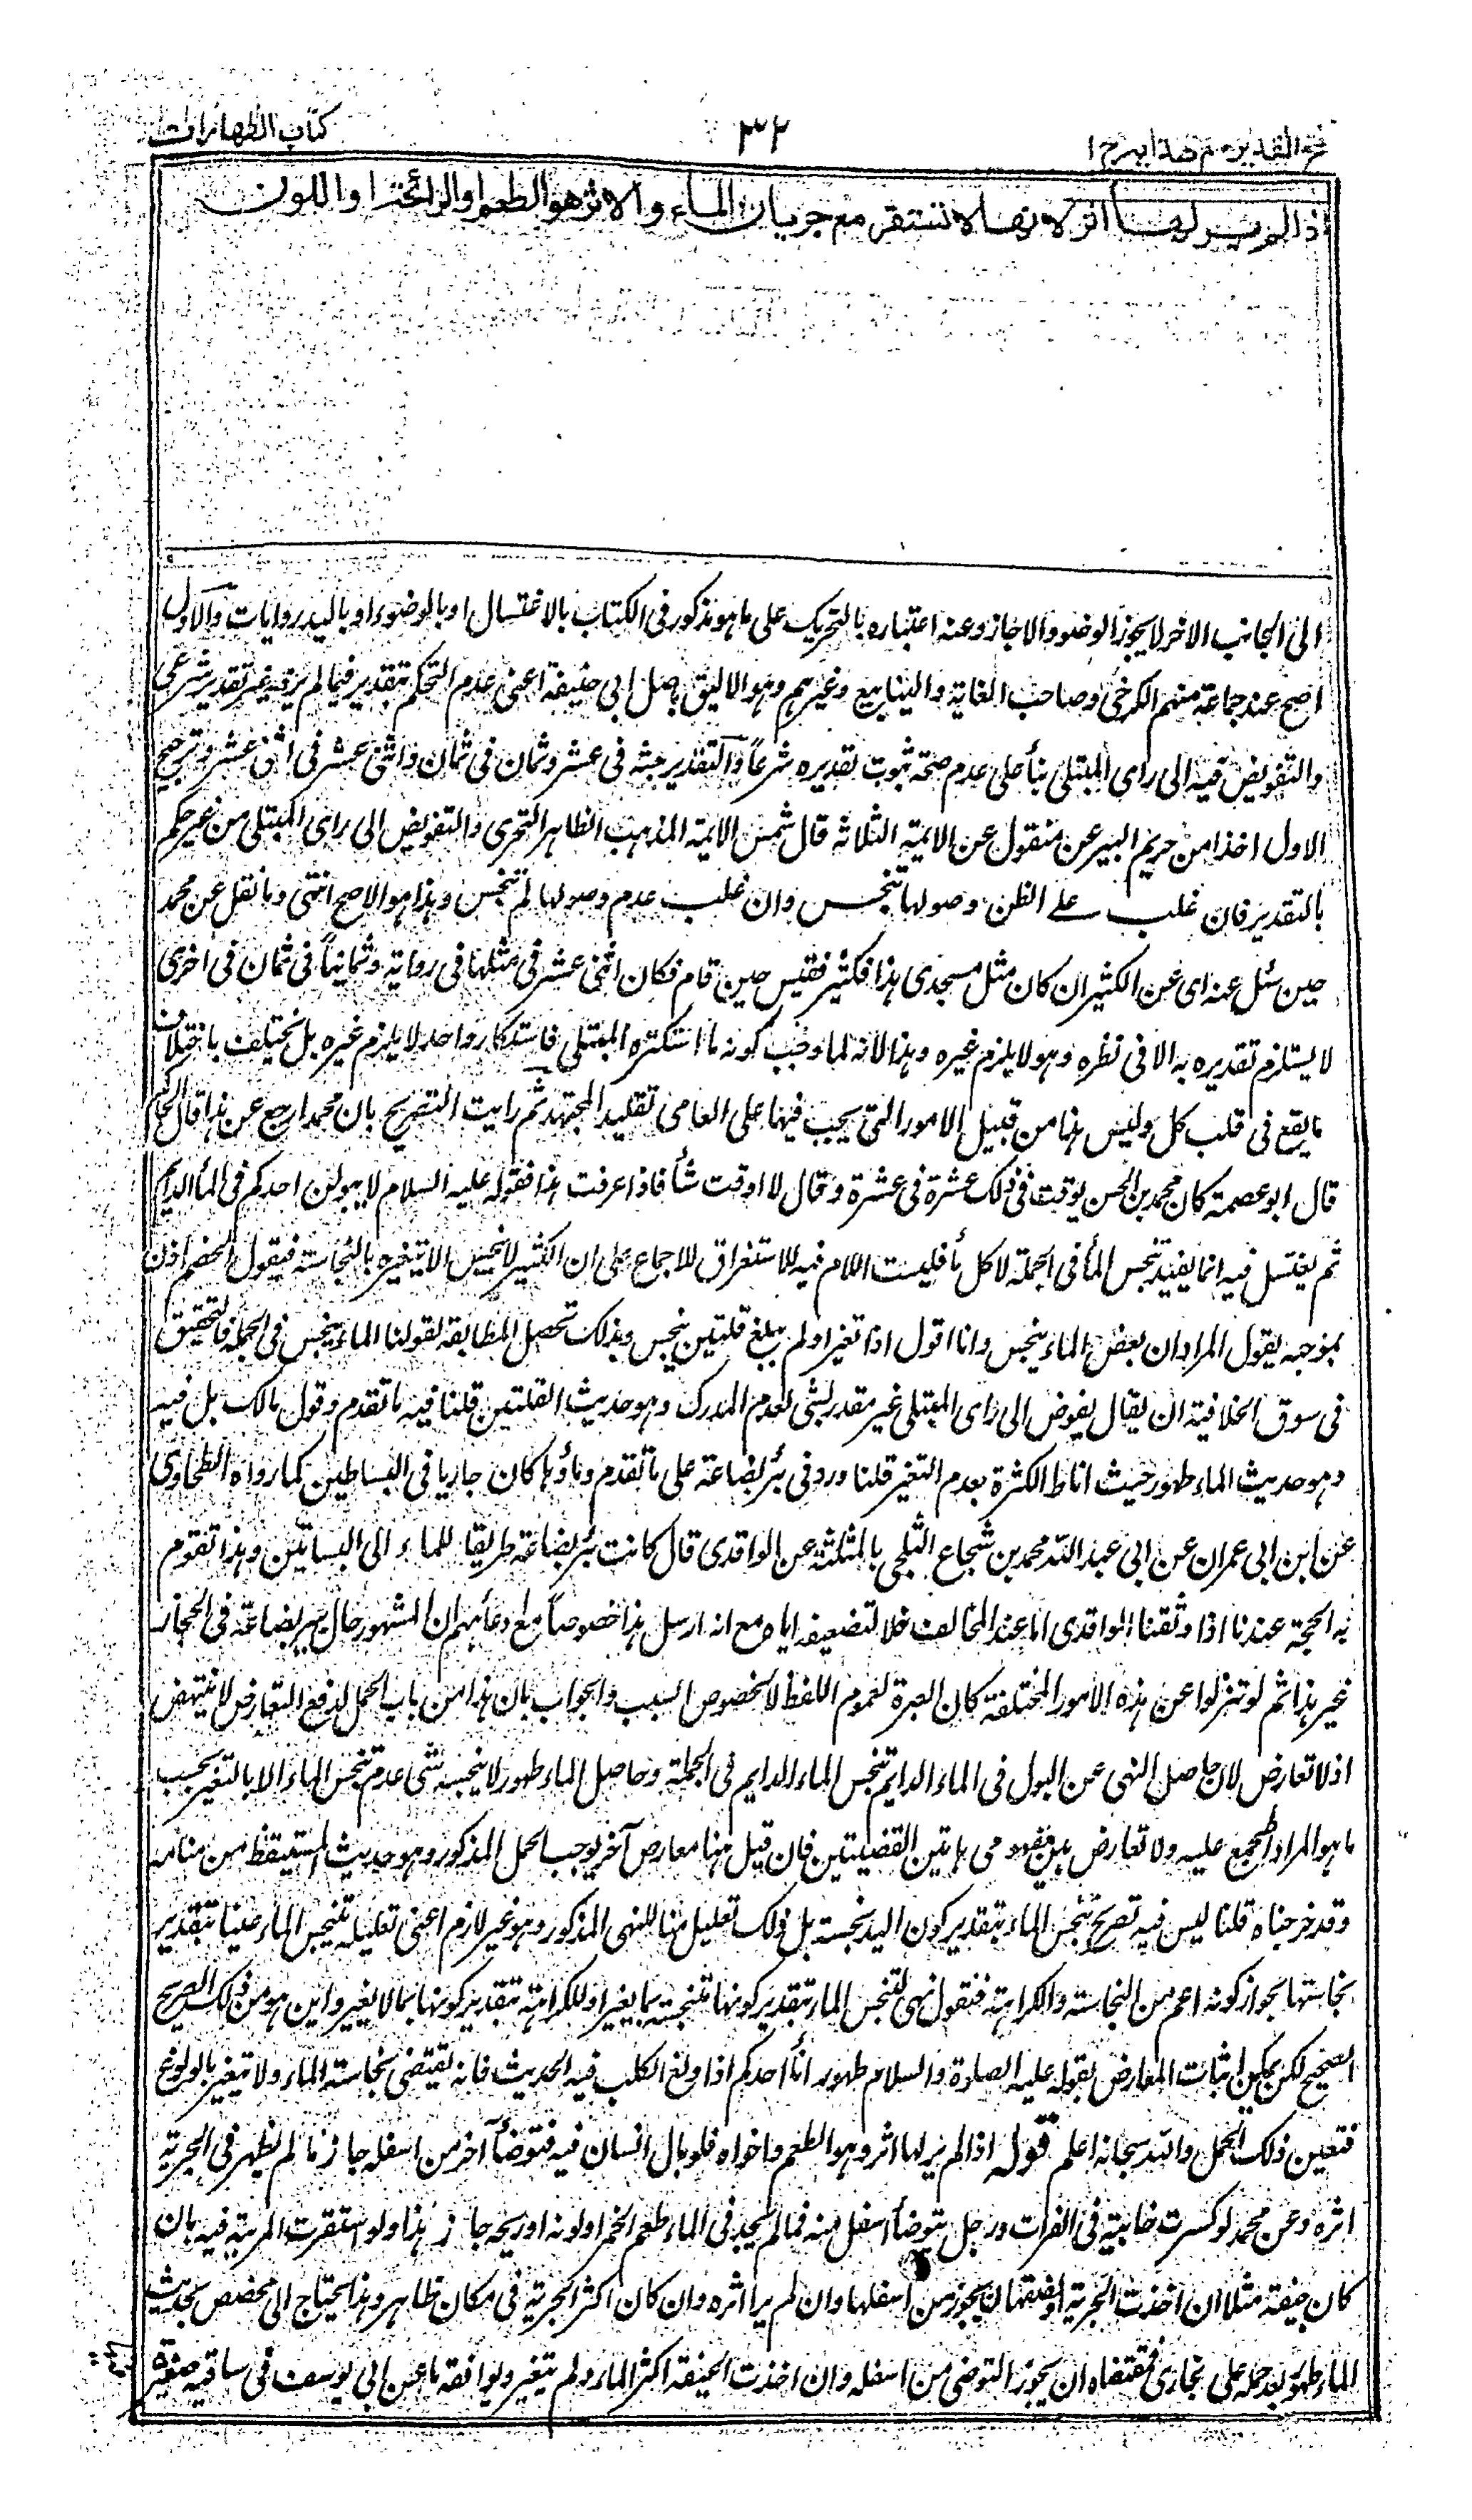 فتح القدير مع هدايه ج ١
٣٢
كتاب الطهارات
اذا لم ير لها اثر لانها لا تستقر مع جريان الماء والاثر هو الطعم او الرائحة او اللون
الى الجانب الاخر لا يجوز الوضوء والا جاز وعنه اعتباره بالتحريك على ما هو مذكور فى الكتاب بالاغتسال او بالوضوء او باليد روايات والاول
اصح عند جماعة منهم الكرخى وصاحب الغاية والينابيع وغيرهم وهو الاليق باصل ابى حنيفة اعنى عدم التحكم بتقدير فيما لم يرد فيه تقدير شرعى
والتفويض فيه الى راى المبتلى بناً على عدم صحة ثبوت تقديره شرعاً والتقدير بعشر فى عشر وثمان فى ثمان واثنى عشر فى اثنى عشر وترجيح
الاول اخذا من حريم البير غير منقول عن الايمة الثلاثة قال شمس الايمة المذهب الظاهر التحرى والتفويض الى راى المبتلى من غير حكم
بالتقدير فان غلب على الظن وصولها تنجس وان غلب عدم وصولها لم تنجس وهذا هو الاصح انتهى وما نقل عن محمد
حين سئل عنه اى عن الكثير ان كان مثل مسجدى هذا فكثير فقيس حين قام فكان اثنى عشر فى مثلها فى رواية وثمانياً فى ثمان فى اخرى
لا يستلزم تقديره به الا فى نظره وهو لا يلزم غيره وهذا لانه لما وجب كونه ما استكثره المبتلى فاستكثار واحد لا يلزم غيره بل يختلف باختلاف
ما يقع فى قلب كل وليس هذا من قبيل الامور التى يجب فيها على العامى تقليد المجتهد ثم رايت التصريح بان محمدا رجع عن هذا قال الحاكم
قال ابو عصمة كان محمد بن الحسن يوقت فى ذلك عشرة فى عشرة وقال لا اوقت شأ فاذا عرفت هذا فقوله عليه السلام لا يبولن احدكم فى الماً الدايم
ثم يغتسل فيه انما يفيد تنجس الماً فى الجملة لا كل ماً فليست اللام فيه للاستغراق للاجماع على ان الكثير لا ينجس الا بتغيره بالنجاسة فيقول الخصم اذن
بموجبه يقول المراد ان بعض الماء ينجس وانا اقول اذا تغير او لم يبلغ قلتين ينجس وبذلك تحصل المطابقة لقولنا الماء ينجس فى الجملة فالتحقيق
فى سوق الخلافية ان يقال يفوض الى راى المبتلى غير مقدر بشئ لعدم المدرك وهو حديث القلتين قلنا فيه ما تقدم وقول مالك بل فيه
وهو حديث الماء طهور حيث اناط الكثرة بعدم التغير قلنا ورد فى بئر بضاعة على ما تقدم وماؤها كان جاريا فى البساطين كما رواه الطحاوى
عن ابن ابى عمران عن ابى عبد الله محمد بن شجاع الثلجى بالمثلثة عن الواقدى قال كانت بئر بضاعة طريقا للماء الى البساتين وهذا تقوم
به الحجة عندنا اذا وثقنا الواقدى اما عند المخالف فلا لتضعيفه اياه مع انه ارسل هذا خصوصاً مع دعائهم ان المشهور حال بير بضاعة فى الحجاز
غير هذا ثم لو تنزلوا عن هذه الامور المختلفة كان العبرة لعموم اللفظ لا لخصوص السبب والجواب بان هذا من باب الحمل لدفع التعارض لا ينتهض
اذ لا تعارض لان حاصل النهى عن البول فى الماء الدايم تنجس الماء الدايم فى الجملة وحاصل الماء طهور لا ينجسه شئ عدم تنجس الماء الا بالتغير بحسب
ما هو المراد المجمع عليه ولا تعارض بين مفهومى هاتين القضيتين فان قيل هنا معارض آخر يوجب الحمل المذكور وهو حديث المستيقظ من منامه
وقد خرجناه قلنا ليس فيه تصريح بتنجس الماء بتقدير كون اليد نجسة بل ذلك تعليل منا للنهى المذكور وهو غير لازم اعنى تعليله بتنجس الماء عينا بتقدير
نجاستها لجواز كونه اعم من النجاسة والكراهة فنقول نهى لتنجس الماء بتقدير كونها متنجسة بما يغير او للكراهة بتقدير كونها بما لا يغير واين هو من ذلك الصريح
الصحيح لكن يمكن اثبات المعارض بقوله عليه الصلوة والسلام طهور اناً احدكم اذا ولغ الكلب فيه الحديث فانه يقتضى نجاسة الماء ولا تغير بالولوغ
فتعين ذلك الحمل والله سبحانه اعلم قوله اذا لم ير لها اثر وهو الطعم واخواه فلو بال انسان فيه فتوضاً آخر من اسفله جاز ما لم يظهر فى الجرية
اثره وعن محمد لو كسرت خابية فى الفرات ورجل يتوضأ اسفل منه فما لم يجد فى الماء طعم الخمر او لونه او ريحه جاز هذا ولو استقرت المرئية فيه بان
كان جيفة مثلا ان اخذت الجرية او نصفها لا يجوز من اسفلها وان لم ير اثره وان كان اكثر الجرية فى مكان ظاهر وهذا يحتاج الى مخصص بحديث
الماء طهور بعد حمله على الجارى فمقتضاه ان يجوز التوضى من اسفله وان اخذت الجيفة اكثر الماء ولم يتغير ويوافقه ما عن ابى يوسف فى ساقية صغيرة